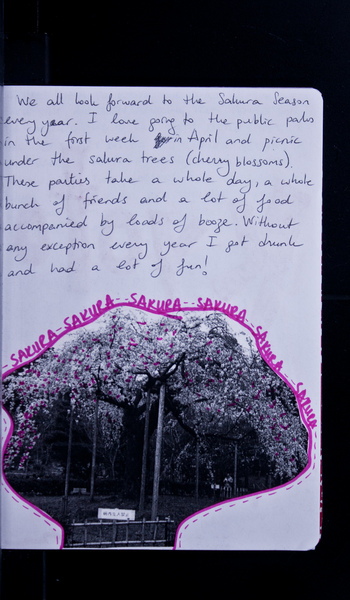 We all look forward to the Sakura Season
every year. I love going to the public parks
in the first week in April and picnic
under the sakura trees (cherry blossoms).
These parties take a whole day, a whole
bunch of friends and a lot of food
accompanied by loads of booze. Without
any exception every year I got drunk
and had a lot of fun!
SAKURA-SAKURA--SAKURA--SAKURA-SAKURA--SAKURA